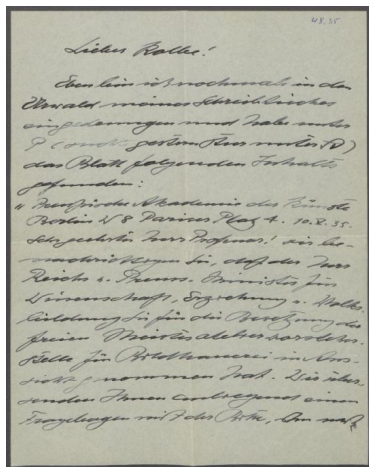 48.35
Lieber Kolbe!
Eben bin ich nochmals in den
Urwald meines Schreibtisches
eingedrungen und habe unter
P (
das Blatt folgenden Inhalts
gefunden:
"Preußische Akademie der Künste
Berlin W 8 Pariser Platz 4. 10.X.35.
Sehr geehrter Herr Professor! wir be-
nachrichtigen Sie, daß der Herr
Reichs u. Preuss. Minister für
Wissenschaft, Erziehung u. Volks-
bildung Sie für die Besetzung der
freien Meisteratelier
stelle für Bildhauerei in Aus-
sicht genommen hat. Wir über-
senden Ihnen anliegend einen
Fragebogen mit der Bitte,